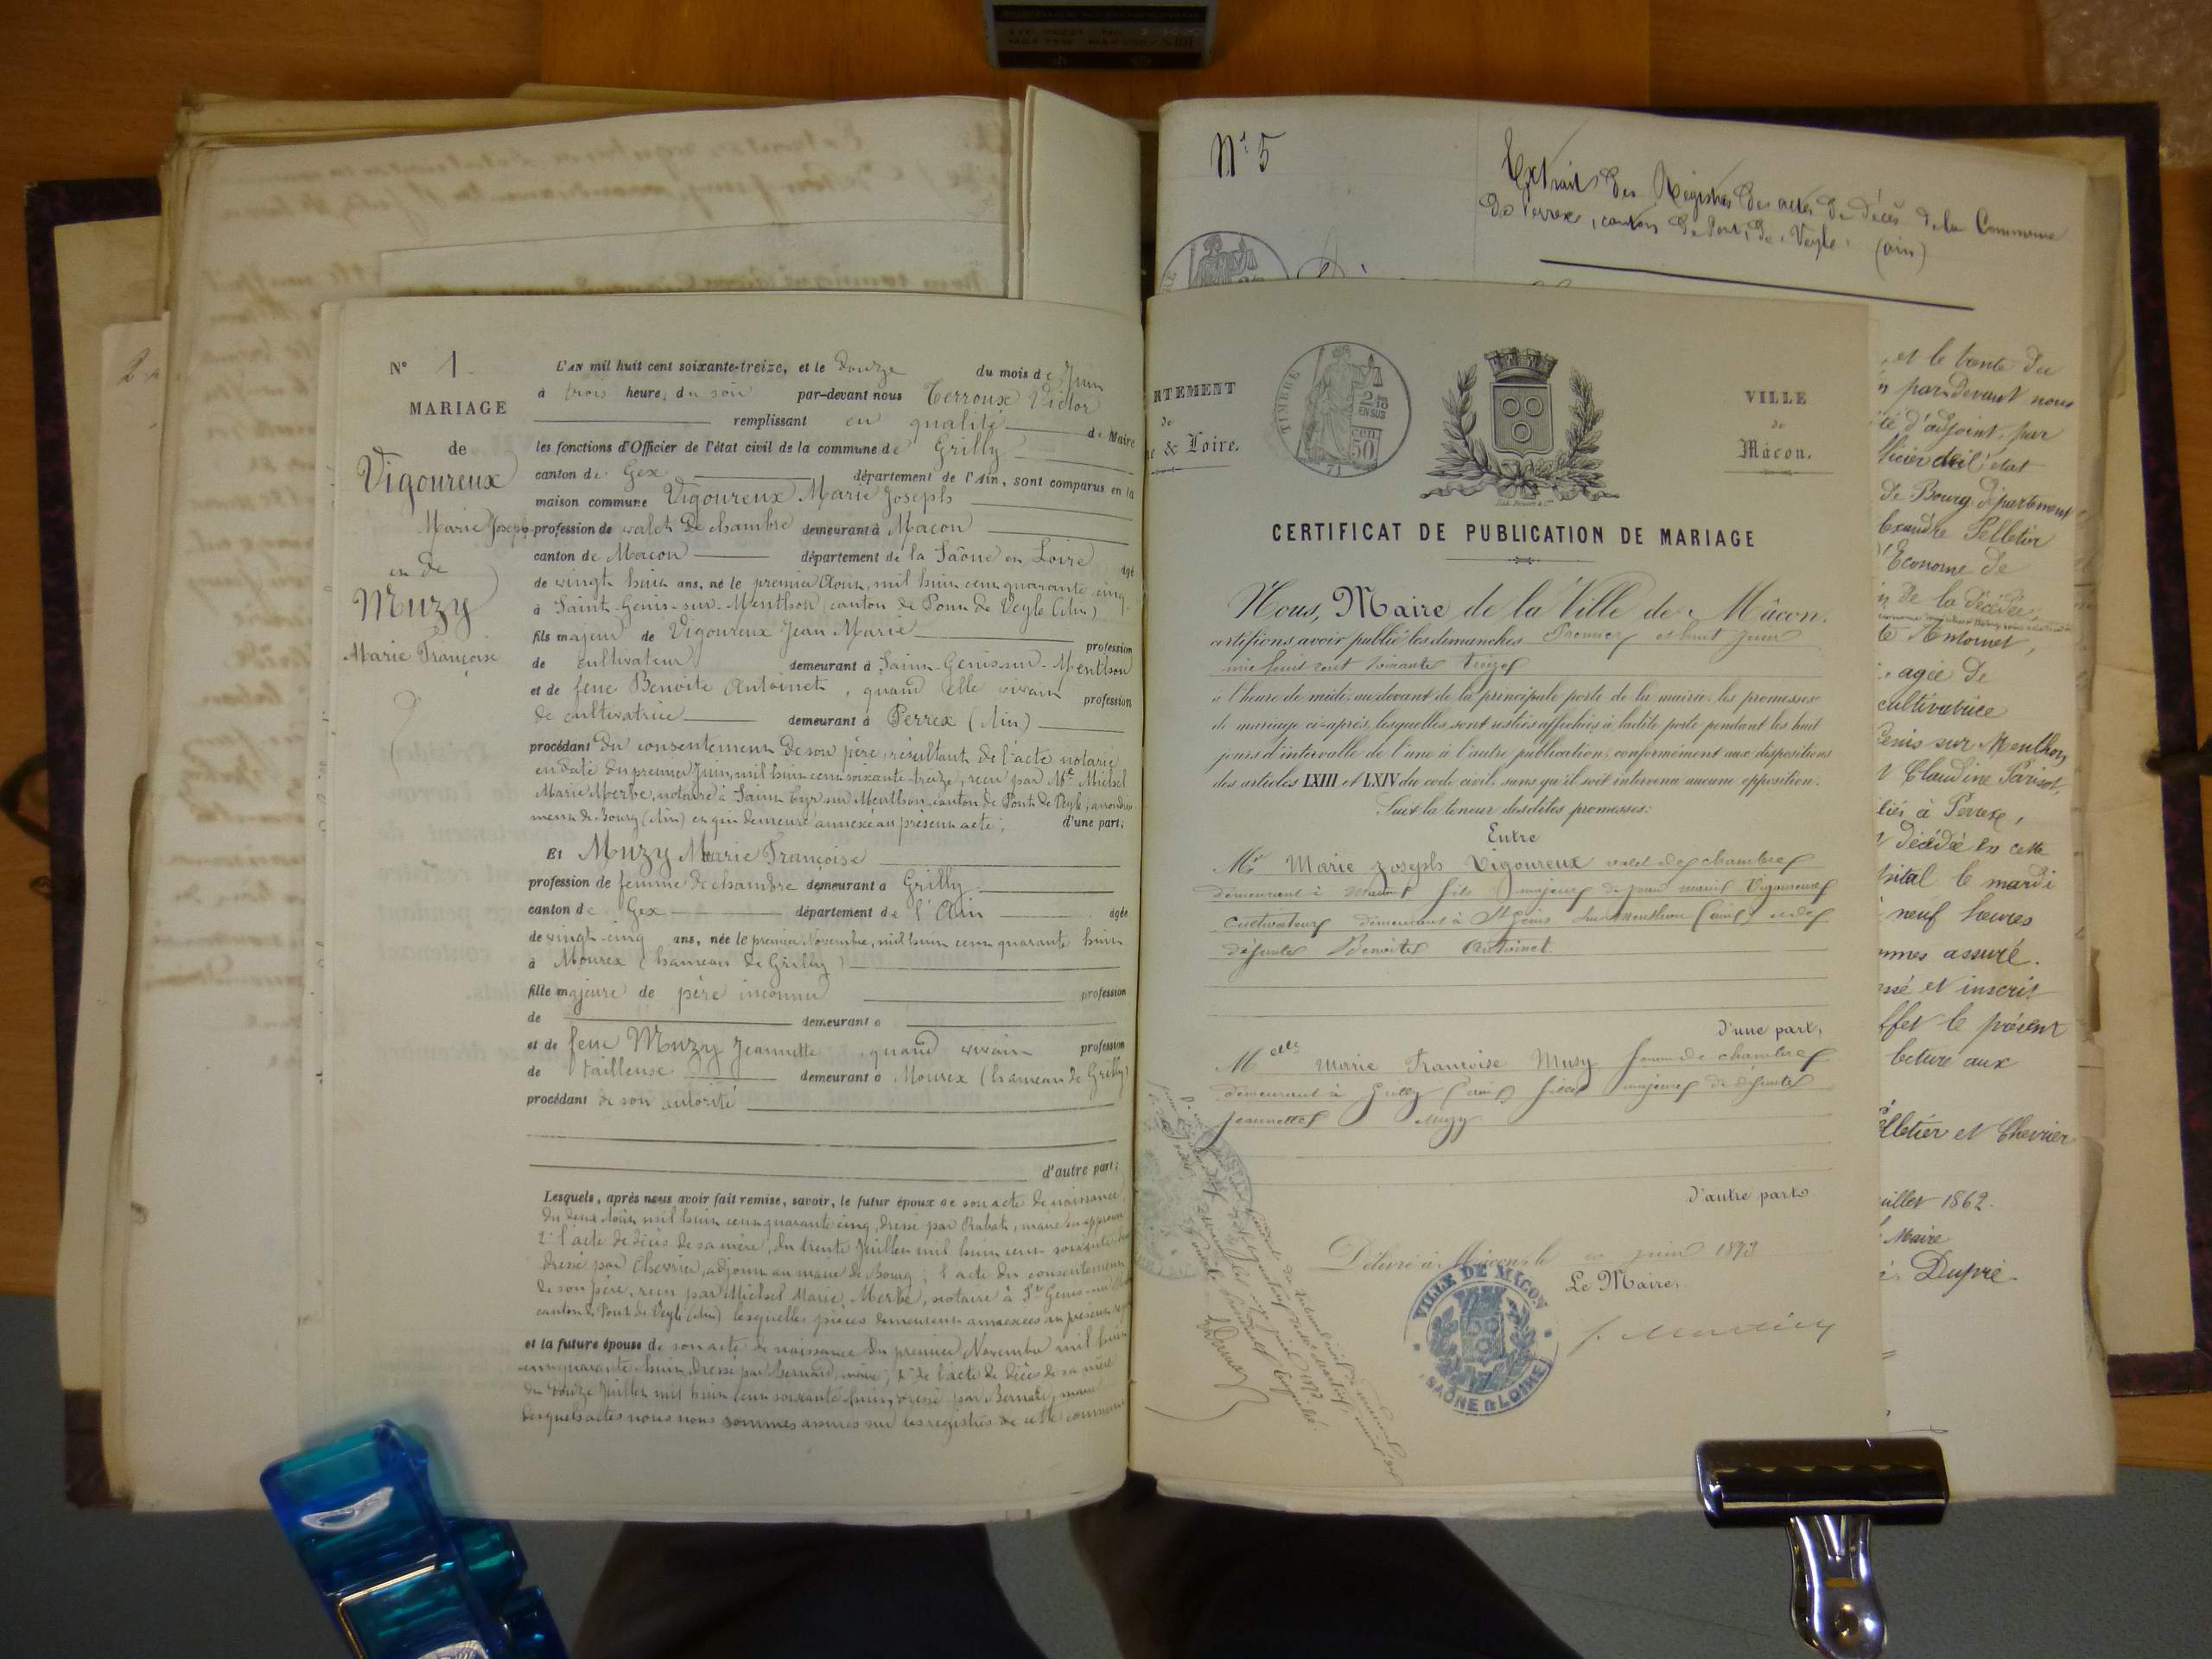 N° 1
MARIAGE
de
Vigoureux
Marie Joseph
et de
Muzy
Marie Françoise
L'AN mil huit cent soixante-treize, et le douze du mois de Juin
à trois heures du soir par-devant nous Terroux Victor
remplissant en qualité de Maire
les fonctions d'Officier de l'état civil de la commune de Grilly
canton de Gex département de l'Ain, sont comparus en la
maison commune Vigoureux Marie Joseph
profession de valet de chambre demeurant à Macon
canton de Macon département de la Saône et Loire agé
de vingt huit ans, né le premier Août, mil huit cent quarante cinq
à Saint-Genis-sur-Menthon (canton de Pont de Veyle (Ain)
fils majeur de Vigoureux Jean Marie profession
de cultivateur demeurant à Saint-Genis-sur-Menthon
et de feue Benoite Antoinet, quand elle vivait profession
de cultivatrice demeurant à Perrex (Ain)
procédant du consentement de son père, résultant de l'acte notarié
en date du premier Juin, mil huit cent soixante-treize, reçu par Me Michel
Marie Merbe, notaire à Saint Cyr sur Menthon, canton de Pont de Veyle, arrondis
ment de Bourg (Ain) et qui demeure annexé au présent acte; d'une part;
Et Muzy Marie Françoise
profession de femme de chambre demeurant à Grilly
canton de Gex département de l'Ain agée
de vingt-cinq ans, née le premier Novembre, mil huit cent quarante huit
à Mourex (hameau de Grilly)
fille majeure de père inconnu profession
de demeurant à
et de feue Muzy Jeannette quand vivait profession
de tailleuse demeurant à Mourex (hameau de Grilly)
procédant de son autorité
d'autre part;
Lesquels, après nous avoir fait remise, savoir, le futur époux de son acte de naissance
du deux Août mil huit cent quarante cinq, dressé par Rabat, maire
2° l'acte de décès de sa mère, du trente Juillet mil huit cent soixante
dressé par Chevrier, adjoint au maire de Bourg; l'acte du consentement
de son père, reçu par Michel Marie Merbe, notaire à St Genis-sur
canton de Pont de Veyle (Ain) lesquelles pièces demeurent annexées au présent
et la future épouse de son acte de naissance du premier Novembre mil huit
cent quarante huit, dressé par Bernard, maire; 2° de l'acte de décès de sa mère
du douze Juillet mil huit cent soixante huit, dressé par Bernard, maire
desquels actes nous nous sommes assurés sur les registres de cette commune
N° 5
Extrait des Registres des actes de décès de la Commune
de Perrex, canton de Pont de Veyle (ain)
RTEMENT
de
& Loire.
TIMBRE
2/10
EN SUS
50
VILLE
de
Mâcon.
CERTIFICAT DE PUBLICATION DE MARIAGE
Nous, Maire de la Ville de Mâcon,
certifions avoir publié les dimanches Premier et huit Juin
mil huit cent soixante treize
à l'heure de midi, au devant de la principale porte de la mairie, les promesses
de mariage ci-après, lesquelles sont restées affichées à ladite porte pendant les huit
jours d'intervalle de l'une à l'autre publication, conformément aux dispositions
des articles LXIII et LXIV du code civil, sans qu'il soit intervenu aucune opposition.
Suit la teneur desdites promesses:
Entre
Mr Marie Joseph Vigoureux valet de chambre
demeurant à Macon fils majeur de Jean Marie Vigoureux
Cultivateur demeurant à St Genis sur Menthon (ain) et de
défunte Benoite Antoinet
d'une part,
Melle Marie Francoise Musy femme de chambre
demeurant à Grilly (ain) fille majeure de défunte
Jeannette Muzy
d'autre part.
Délivré à Mâcon, le 10 juin 1873
Le Maire,
VILLE DE MACON
SAÔNE & LOIRE
et le trente du
par devant nous
d'adjoint, par
l'état
de Bourg département
Pelletier
Econome de
de la décédée,
Antoinet,
agée de
cultivatrice
Genis sur Menthon
Claudine Parisot,
à Perrex,
décédé en cette
le mardi
neuf heures
assuré.
et inscrit
le présent
lecture aux
Pelletier et Chevrier
juillet 1862.
Maire
Dupré